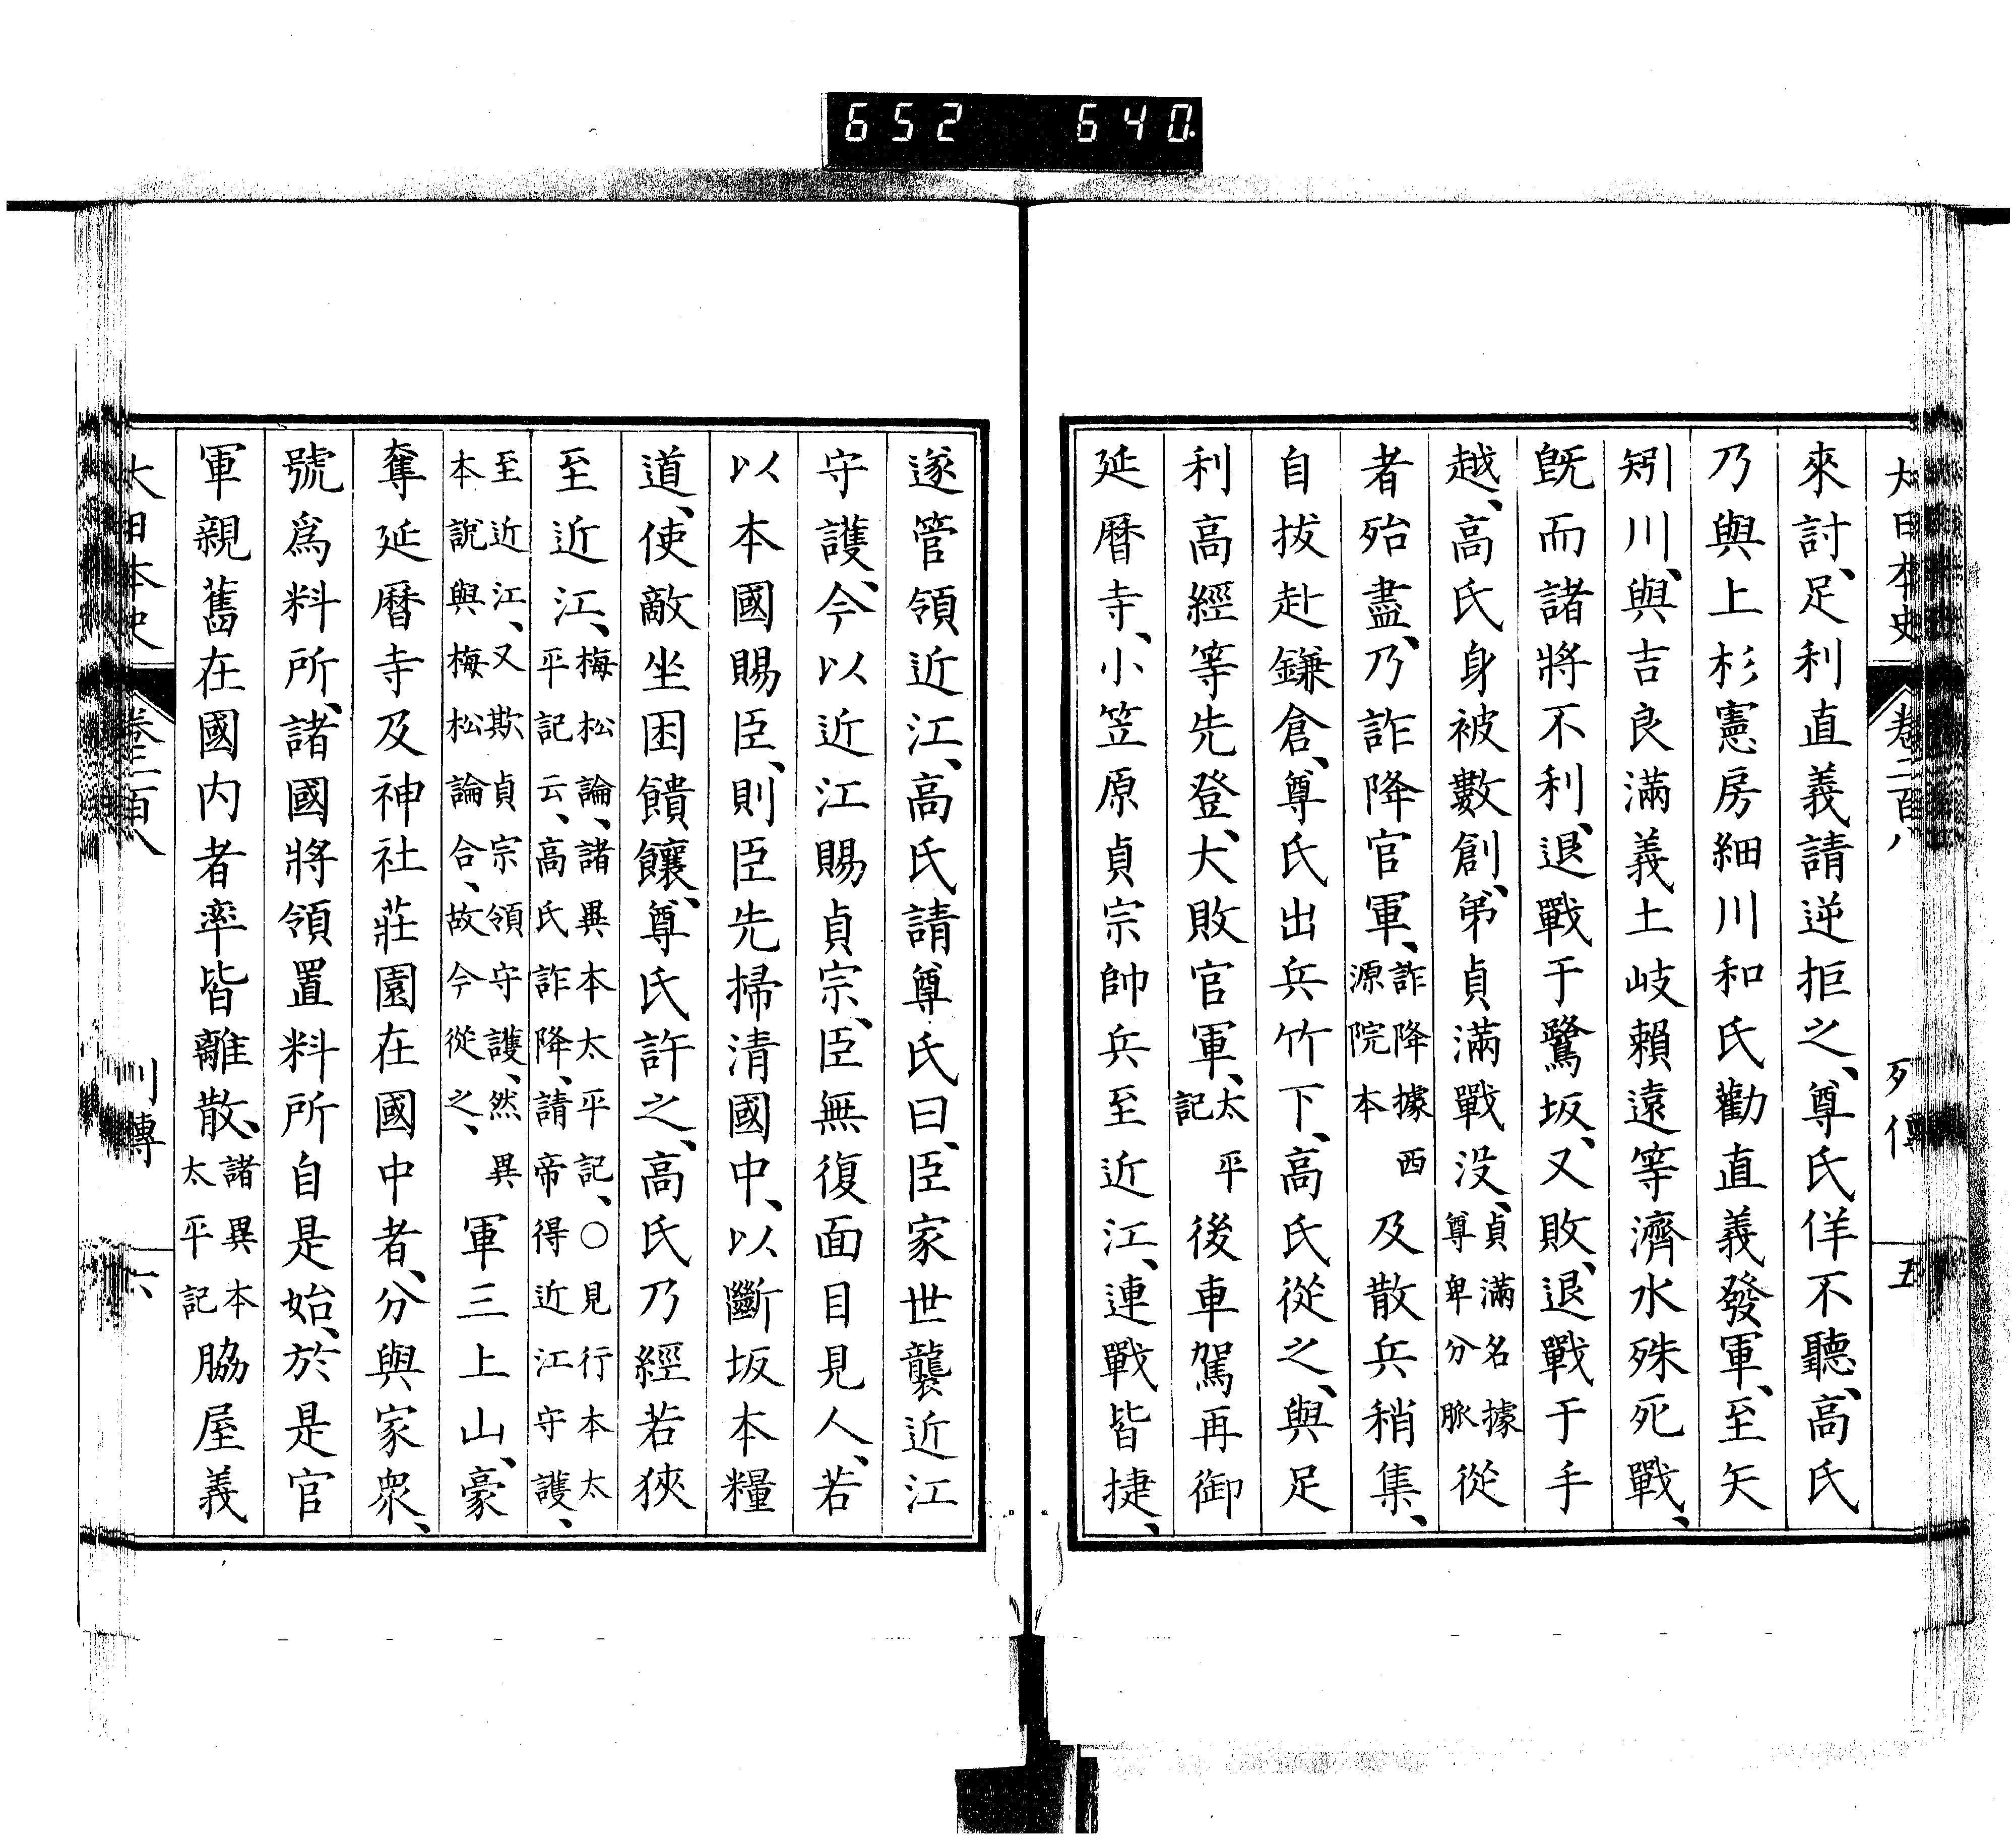 652 640
大日本史 卷二百八 列傳 五
來討、足利直義請逆拒之、尊氏佯不聽、高氏
乃與上杉憲房細川和氏勸直義發軍、至矢
矧川、與吉良滿義土岐賴遠等濟水殊死戰、
旣而諸將不利、退戰于鷺坂、又敗、退戰于手
越、高氏身被數創、弟貞滿戰沒、貞滿名據尊卑分脈從
者殆盡、乃詐降官軍、詐降據西源院本及散兵稍集、
自拔赴鎌倉、尊氏出兵竹下、高氏從之、與足
利高經等先登、大敗官軍、太平記後車駕再御
延曆寺、小笠原貞宗帥兵至近江、連戰皆捷、
遂管領近江、高氏請尊氏曰、臣家世襲近江
守護、今以近江賜貞宗、臣無復面目見人、若
以本國賜臣、則臣先掃清國中、以斷坂本糧
道、使敵坐困饋饟、尊氏許之、高氏乃經若狹
至近江、梅松論、諸異本太平記、○見行本太平記云、高氏詐降、請帝得近江守護、
至近江、又欺貞宗領守護、然異本說與梅松論合、故今從之、軍三上山、豪
奪延曆寺及神社莊園在國中者、分與家衆、
號爲料所、諸國將領置料所自是始、於是官
軍親舊在國内者率皆離散、諸異本太平記脇屋義
大日本史 卷二百八 列傳 六